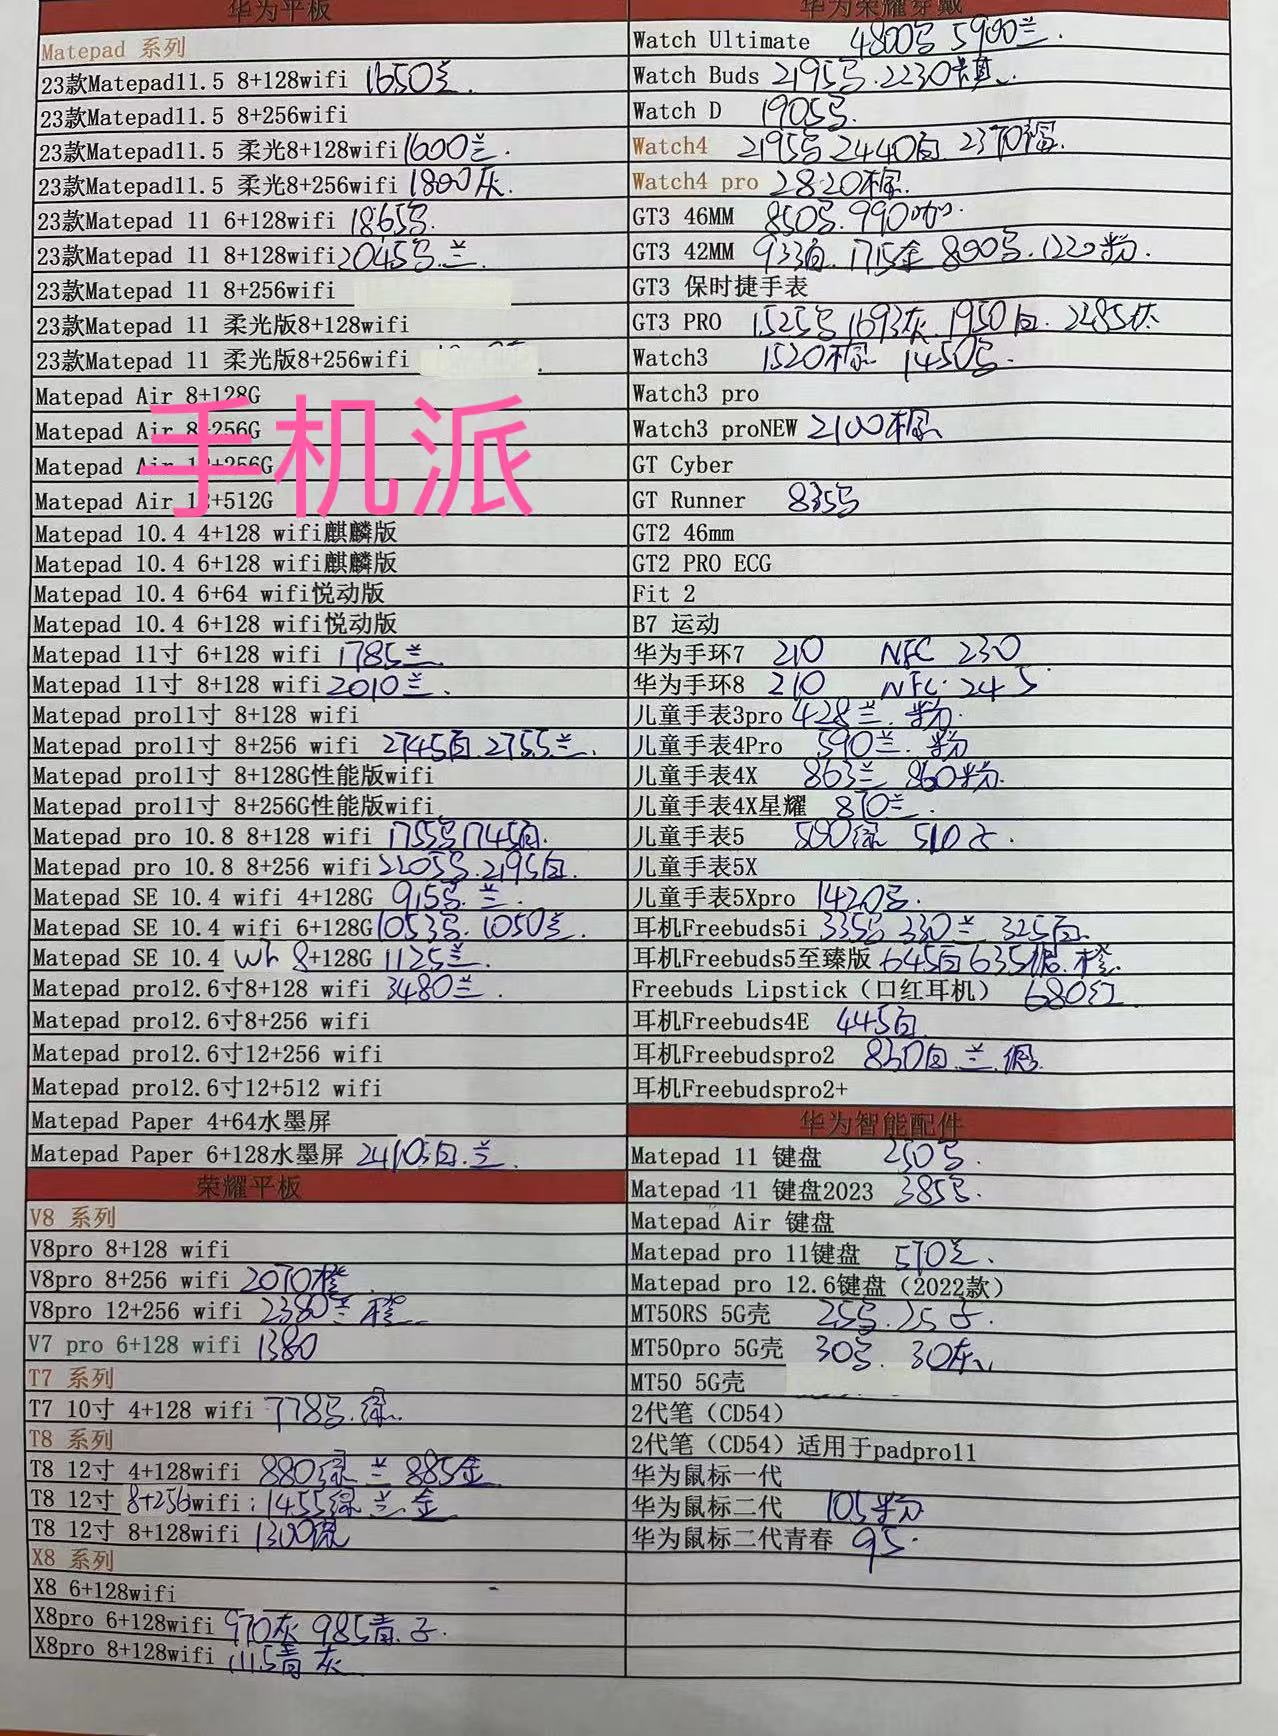 华为平板
Matepad 系列
23款Matepad11.5 8+128wifi 1650兰.
23款Matepad11.5 8+256wifi
23款Matepad11.5 柔光8+128wifi 1600兰.
23款Matepad11.5 柔光8+256wifi 1800灰.
23款Matepad 11 6+128wifi 1865
23款Matepad 11 8+128wifi 2045 兰.
23款Matepad 11 8+256wifi
23款Matepad 11 柔光版8+128wifi
23款Matepad 11 柔光版8+256wifi
Matepad Air 8+128G
Matepad Air 8+256G
Matepad Air 12+256G
Matepad Air 12+512G
手机派
Matepad 10.4 4+128 wifi麒麟版
Matepad 10.4 6+128 wifi麒麟版
Matepad 10.4 6+64 wifi悦动版
Matepad 10.4 6+128 wifi悦动版
Matepad 11寸 6+128 wifi 1785兰.
Matepad 11寸 8+128 wifi 2010兰.
Matepad pro11寸 8+128 wifi
Matepad pro11寸 8+256 wifi 2745白.2755兰.
Matepad pro11寸 8+128G性能版wifi
Matepad pro11寸 8+256G性能版wifi
Matepad pro 10.8 8+128 wifi 1755 1745白.
Matepad pro 10.8 8+256 wifi 2205 2195白.
Matepad SE 10.4 wifi 4+128G 915 兰.
Matepad SE 10.4 wifi 6+128G 1053 1050兰.
Matepad SE 10.4 wh 8+128G 1125兰.
Matepad pro12.6寸8+128 wifi 3480兰.
Matepad pro12.6寸8+256 wifi
Matepad pro12.6寸12+256 wifi
Matepad pro12.6寸12+512 wifi
Matepad Paper 4+64水墨屏
Matepad Paper 6+128水墨屏 2410 白.兰.
荣耀平板
V8 系列
V8pro 8+128 wifi
V8pro 8+256 wifi 2070橙
V8pro 12+256 wifi 2380兰 橙.
V7 pro 6+128 wifi 1380
T7 系列
T7 10寸 4+128 wifi 778 绿.
T8 系列
T8 12寸 4+128wifi 880绿 兰 885金
T8 12寸 8+256wifi: 1455绿 兰.金
T8 12寸 8+128wifi 1300
X8 系列
X8 6+128wifi
X8pro 6+128wifi 970灰 985青.子.
X8pro 8+128wifi 1115青 灰
华为荣耀穿戴
Watch Ultimate 4800 5900兰.
Watch Buds 2195 2230
Watch D 1905
Watch4 2195 2440白. 2370棕.
Watch4 pro 2820棕.
GT3 46MM 850 990
GT3 42MM 933白. 1715金 800 1220粉.
GT3 保时捷手表
GT3 PRO 1525 1693灰.1950白. 2285
Watch3 1520棕 1450
Watch3 pro
Watch3 proNEW 2100棕
GT Cyber
GT Runner 835
GT2 46mm
GT2 PRO ECG
Fit 2
B7 运动
华为手环7 210 NFC 230
华为手环8 210 NFC.245
儿童手表3pro 428兰.粉.
儿童手表4Pro 590兰.粉
儿童手表4X 863兰 860粉.
儿童手表4X星耀 870兰.
儿童手表5 500绿 510子.
儿童手表5X
儿童手表5Xpro 1420
耳机Freebuds5i 335 330兰 325白.
耳机Freebuds5至臻版 645白 635银.橙.
Freebuds Lipstick（口红耳机） 680红
耳机Freebuds4E 445白
耳机Freebudspro2 830白.兰.银.
耳机Freebudspro2+
华为智能配件
Matepad 11 键盘 250
Matepad 11 键盘2023 385
Matepad Air 键盘
Matepad pro 11键盘 570兰.
Matepad pro 12.6键盘（2022款）
MT50RS 5G壳 255 25子.
MT50pro 5G壳 30 30灰
MT50 5G壳
2代笔（CD54）
2代笔（CD54）适用于padpro11
华为鼠标一代
华为鼠标二代 105粉
华为鼠标二代青春 95.